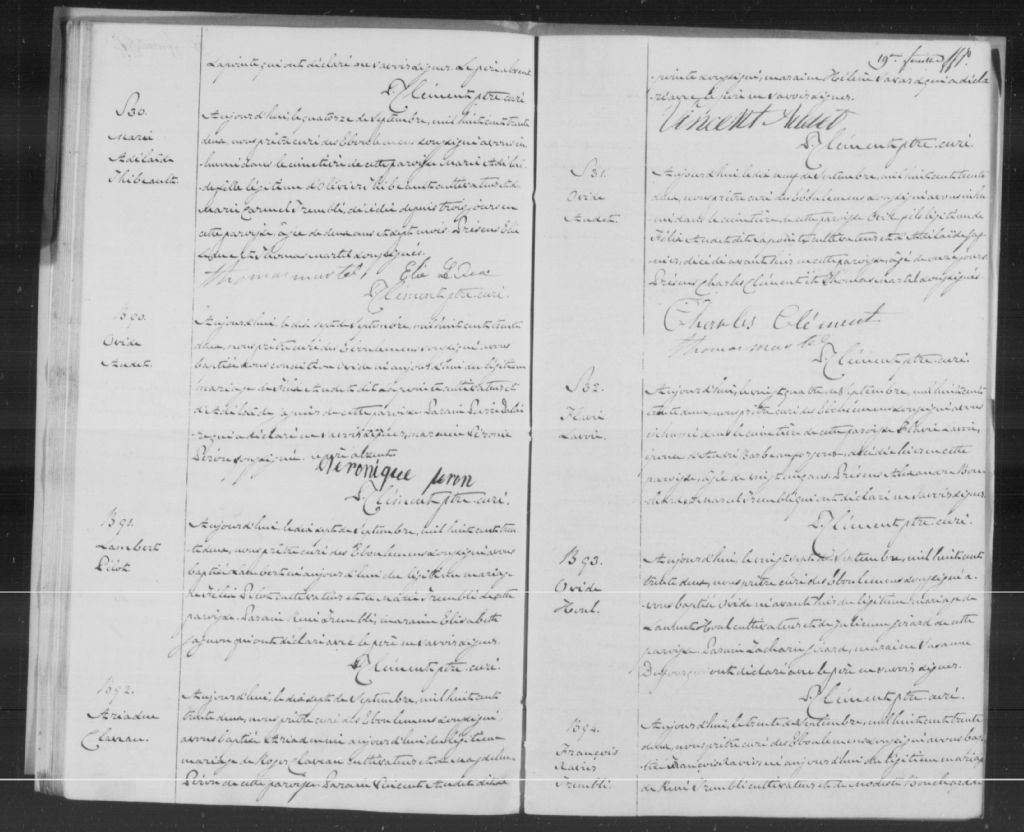 Lapointe qui ont déclaré ne savoir signer. Le père absent
Clément ptre curé
S30.
Marie
Adélaïde
Thibeault
Aujourd'hui, le quatorze de Septembre, mil huit cent trente
deux, nous prêtre curé des Eboulemens soussigné avons in
humé dans le cimetière de cette paroisse Marie Adélaï
de fille légitime d'Olivier Thibeault cultivateur et de
Marie Carmel Tremblé, décédée depuis trois jours en
cette paroisse, âgée de deux ans et sept mois. Présens Elie
et Thomas Martel soussignés.
thomas martel Elie
Clément ptre curé.
B90.
Ovide
Audet.
Aujourd'hui, le dix sept de Septembre, mil huit cent trente
deux, nous prêtre curé des Eboulemens soussigné avons
baptisé sous condition Ovide né aujourd'hui du légitime
mariage de Félix Audet dit Lapointe cultivateur et
d'Adélaïde de cette paroisse. Parain
qui a déclaré ne savoir signer, maraine Véronique
Péron soussignée. Le père absent
Véronique peron
Clément ptre curé.
B91.
Lambert
Pilot
Aujourd'hui le dix sept de Septembre, mil huit cent tren
te deux, nous prêtre curé des Eboulemens soussigné avons
baptisé Lambert né aujourd'hui du légitime mariage
de Pilot cultivateur et de Marie Tremblé de cette
paroisse. Parain René Tremblé, maraine Elisabeth
Gagnon qui ont déclaré avec le père ne savoir signer.
Clément ptre curé.
B92.
Ariadne
Claveau.
Aujourd'hui, le dix sept de Septembre, mil huit cent
trente deux, nous prêtre curé des Eboulemens soussigné
avons baptisé Ariadne née aujourd'hui du légitime
mariage de Roger Claveau cultivateur et de Magdeleine
Péron de cette paroisse. Parain Vincent Audet dit La
19me feuille
pointe soussigné, maraine Hélène qui a décla
ré avec le père ne savoir signer.
Vincent Audet
Clément ptre curé.
S31.
Ovide
Audet.
Aujourd'hui le dix neuf de Septembre, mil huit cent trente
deux, nous prêtre curé des Eboulemens soussigné avons inhu
mé dans le cimetière de cette paroisse Ovide fils légitime de
Félix Audet dit Lapointe cultivateur et d'Adélaïde
décédé avant hier en cette paroisse, âgé de jours.
Présens Charles Clément et Thomas Martel soussignés.
Charles Clément
thomas martel
Clément ptre curé.
S32.
Aujourd'hui, le vingt quatre de Septembre, mil huit cent
trente deux, nous prêtre curé des Eboulemens soussigné avons
inhumé dans le cimetière de cette paroisse
épouse d'André décédée hier en cette
paroisse, âgée de ans. Présens Alexandre
et Marcel Tremblé qui ont déclaré ne savoir signer.
Clément ptre curé.
B93.
Ovide
Houl.
Aujourd'hui, le vingt sept de Septembre, mil huit cent
trente deux, nous prêtre curé des Eboulemens soussigné a-
vons baptisé Ovide né avant hier du légitime mariage de
Laurent Houl cultivateur et de Julienne Girard de cette
paroisse. Parain Zacharie Girard, maraine Susanne
Dufour qui ont déclaré avec le père ne savoir signer.
Clément ptre curé.
B94.
François
Xavier
Tremblé.
Aujourd'hui, le trente de Septembre, mil huit cent trente
deux, nous prêtre curé des Eboulemens soussigné avons bap
tisé François Xavier né aujourd'hui du légitime mariage
de René Tremblé cultivateur et de Modeste Bouchard de